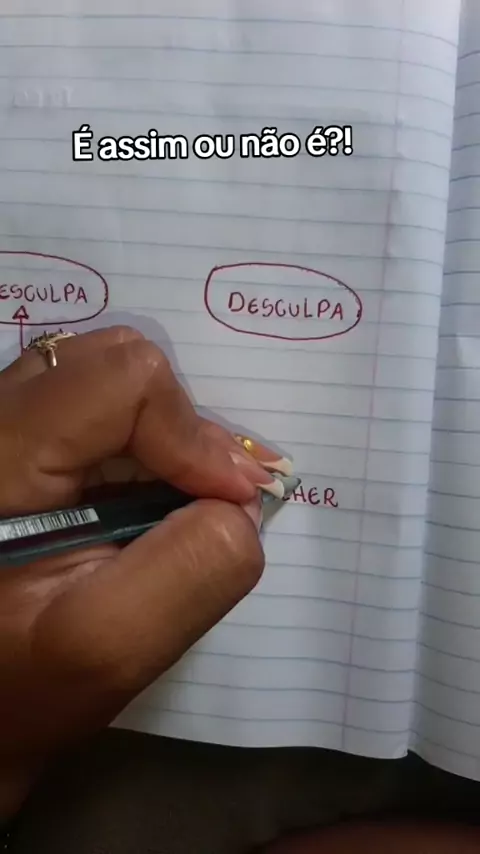 É assim ou não é?!
ESCULPA
DESCULPA
LHER